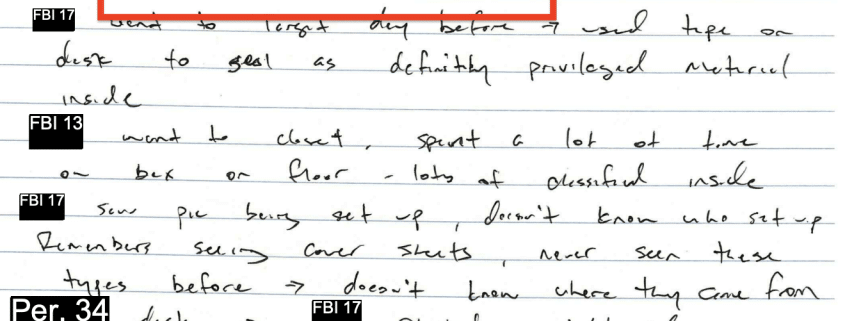 FBI 17 went to target day before → used tape on
desk to seal as definitely privileged material
inside
FBI 13 went to closet, spent a lot of time
on box on floor - lots of classified inside
FBI 17 saw pic being set up, doesn't know who set up
Remembers seeing cover sheets, never seen these
types before → doesn't know where they came from
Per. 34 desk FBI 17